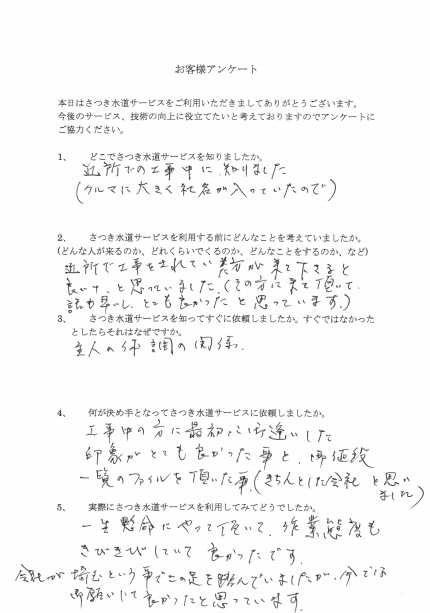 お客様アンケート
本日はさつき水道サービスをご利用いただきましてありがとうございます。
今後のサービス、技術の向上に役立てたいと考えておりますのでアンケートに
ご協力ください。
1、 どこでさつき水道サービスを知りましたか。
近所での工事中に知りました
(クルマに大きく社名が入っていたので)
2、 さつき水道サービスを利用する前にどんなことを考えていましたか。
(どんな人が来るのか、どれくらいでくるのか、どんなことをするのか、など)
近所で工事をされてい 方が来て下さると
良いナ、と思っていました。(その方に来て頂いて、
話も早いし、とても良かったと思っています。)
3、 さつき水道サービスを知ってすぐに依頼しましたか。すぐではなかった
としたらそれはなぜですか。
主人の体調の関係。
4、 何が決め手となってさつき水道サービスに依頼しましたか。
工事中の方に最初にお逢いした
印象がとても良かった事と、 
一覧のファイルを頂いた事。(きちんとした会社と思い
ました)
5、 実際にさつき水道サービスを利用してみてどうでしたか。
一生懸命にやって頂いて、作業態度も
きびきびしていて良かったです。
会社が埼玉という事で二の足を踏んでいましたが、今では
お願いして良かったと思っています。